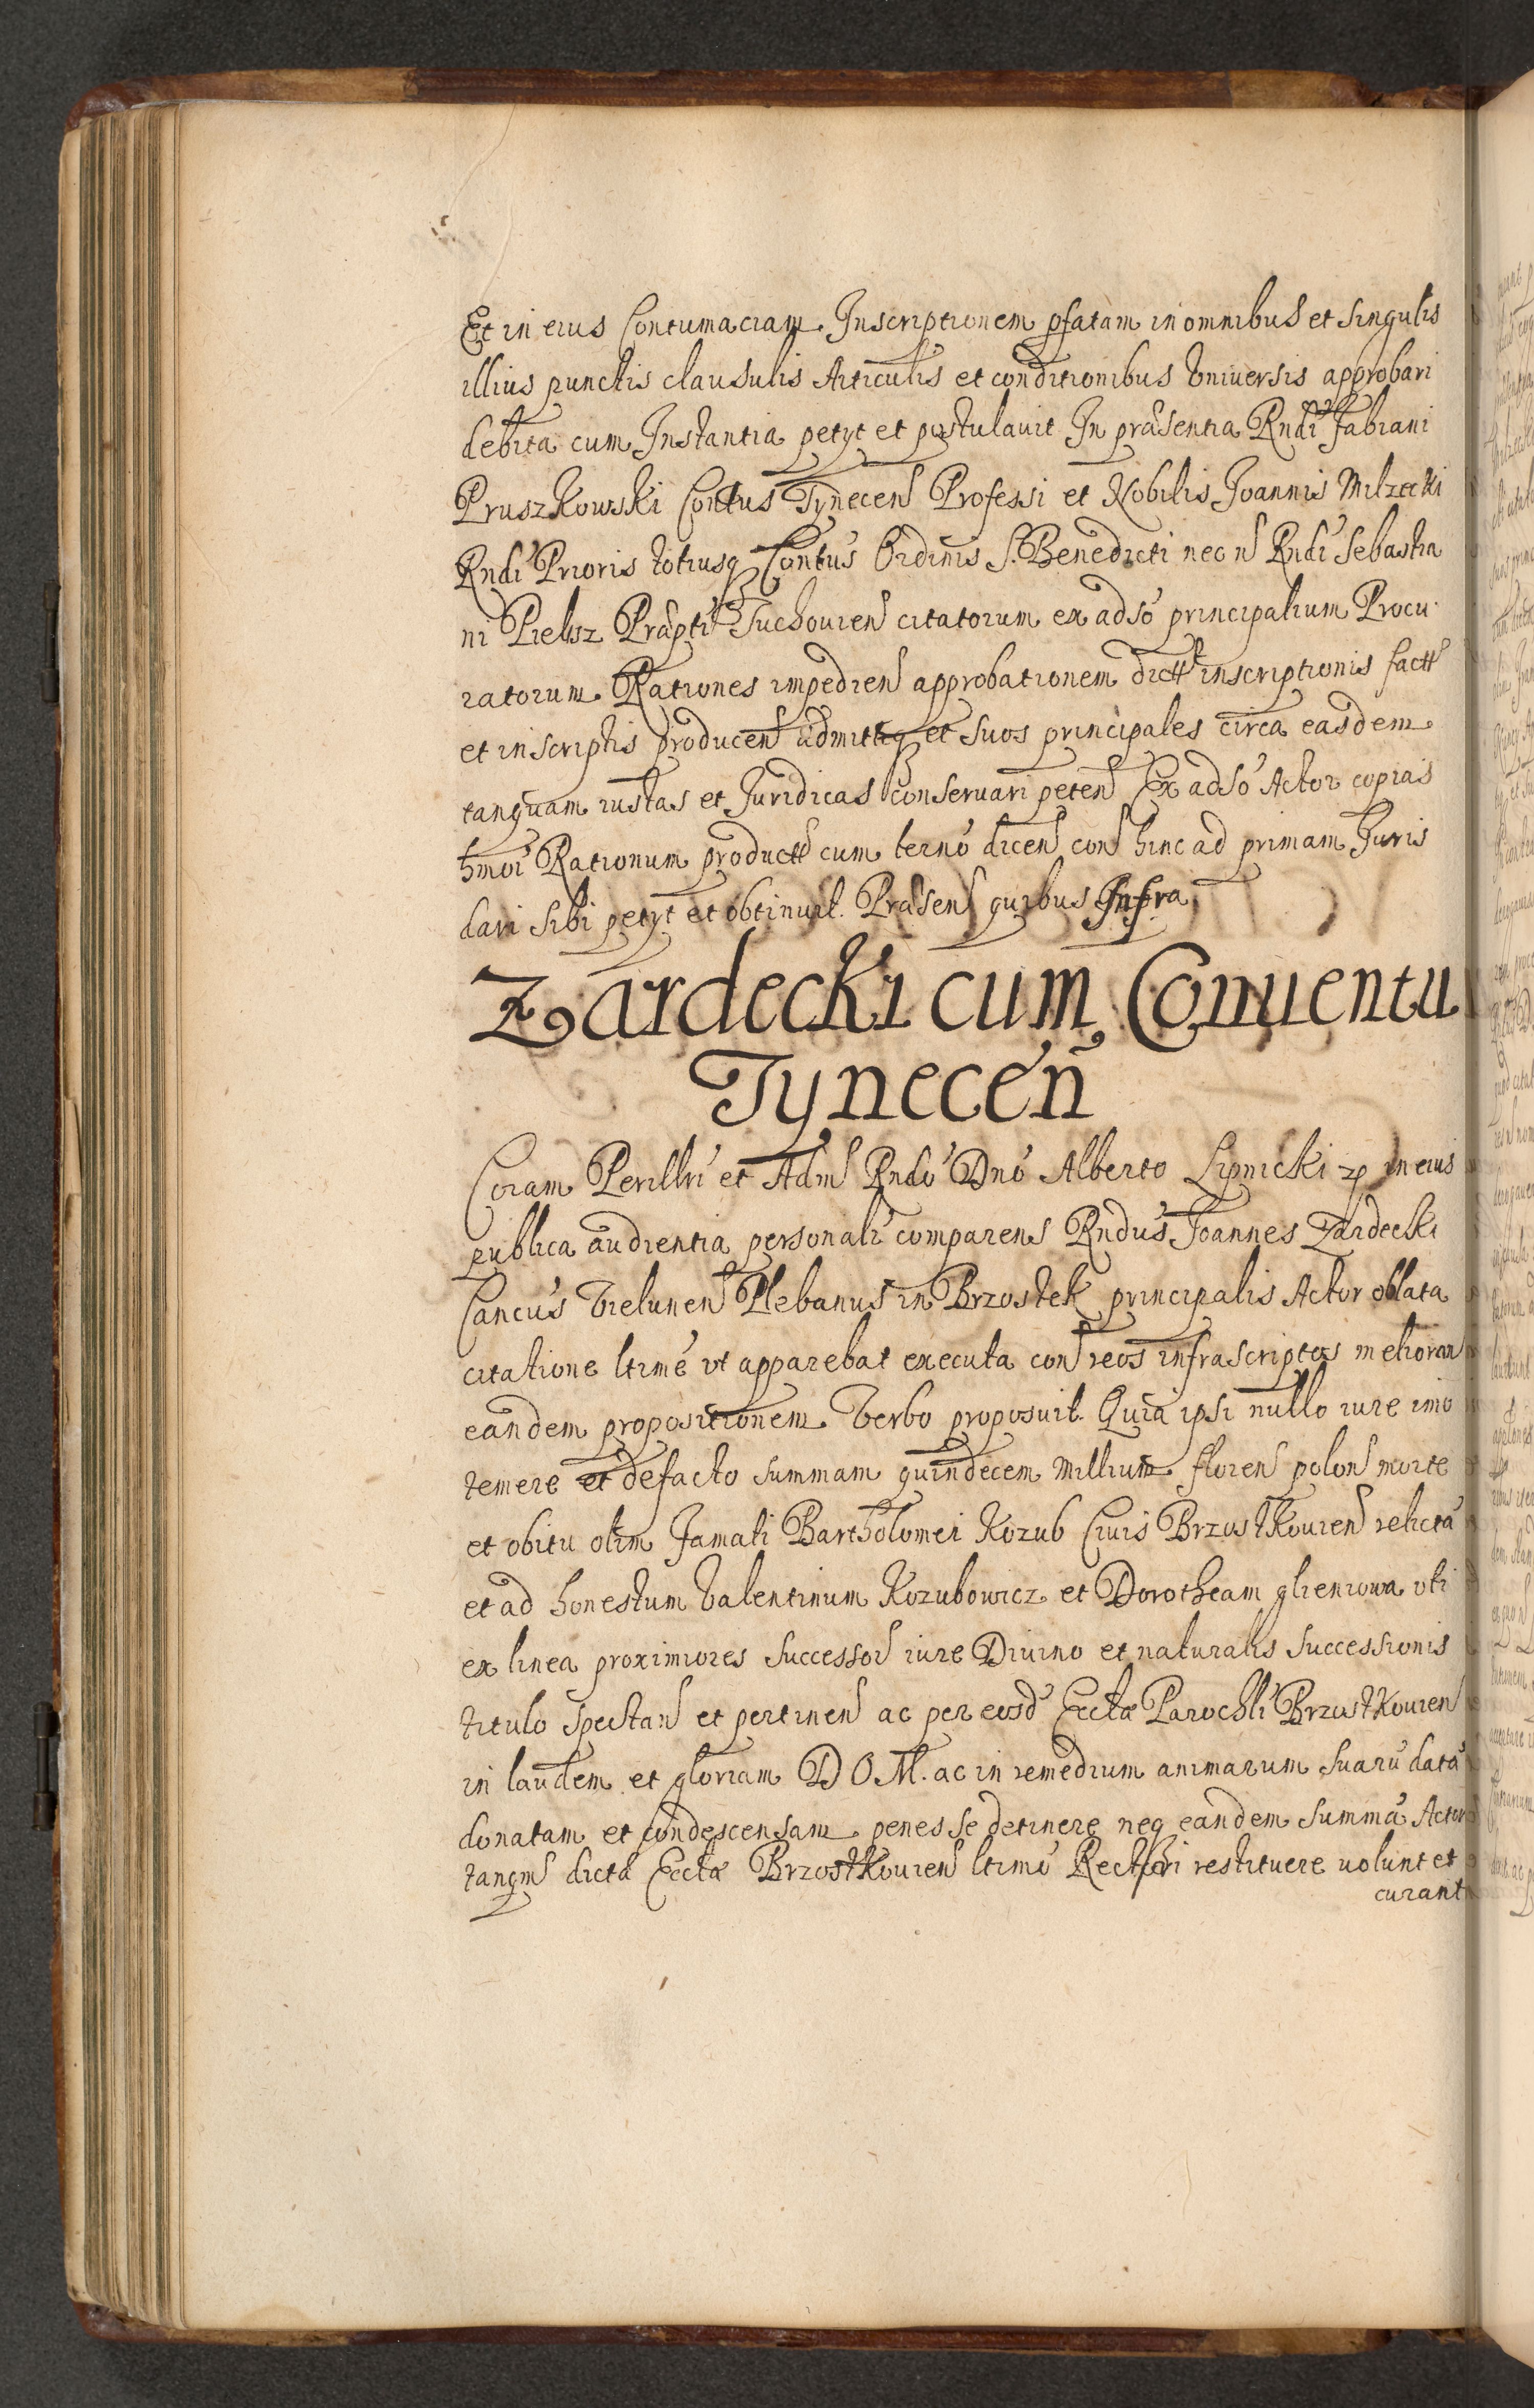 Et in eius Contumaciam Inscriptionem pfatam in omnibus et singulis
illius punctis clausulis Articulis et conditionibus Vniuersis approbari
debita cum Instantia petyt et postulauit In præsentia Rndi Fabiani
Pruszkowski Contus Tynecen Professi et Nobilis Joannis Milzecki
Rndi Prioris totiusq Contus Ordinis S. Benedicti nec n Rndi Sebastia
ni Pielesz Præpti Tuchouien citatorum ex adso principalium Procu
ratorum Rationes impedien approbationem dictt inscriptionis factt
et in scriptis producen admittiq et suos principales circa easdem
tanquam iustas et Juridicas conseruari peten Ex adso Actor copias
hmoi Rationum productt cum termo dicen con hinc ad primam Juris
dari sibi petyt et obtinuit. Præsen quibus Infra
Zardecki cum Conuentu
Tynecen
Coram Perillri et Adm Rndo Dno Alberto Lipnicki in eius
publica audientia personalr comparens Rndus Joannes Zardecki
Cancus Vielunen Plebanus in Brzostek principalis Actor oblata
citatione ltime vt apparebat executa con reos infrascriptos melioran
eandem propositionem Verbo proposuit. Quia ipsi nullo iure imo
temere et defacto summam quindecem Millium floren polon morte
et obitu olim Famati Bartholomei Kozub Ciuis Brzostkouien relicta
et ad honestum Valentinum Kozubowicz et Dorotheam glieniowa vti
ex linea proximiores Successor iure Diuino et naturalis Successionis
titulo spectan et pertinen ac per eosd Ecclæ Parochli Brzostkouien
in laudem et gloriam D O M. ac in remedium animarum suaru data
donatam et condescensam penes se detinere neq eandem summa Actori
tanqm dicta Ecclæ Brzostkouien ltimo Rectori restituere uolunt et
curant